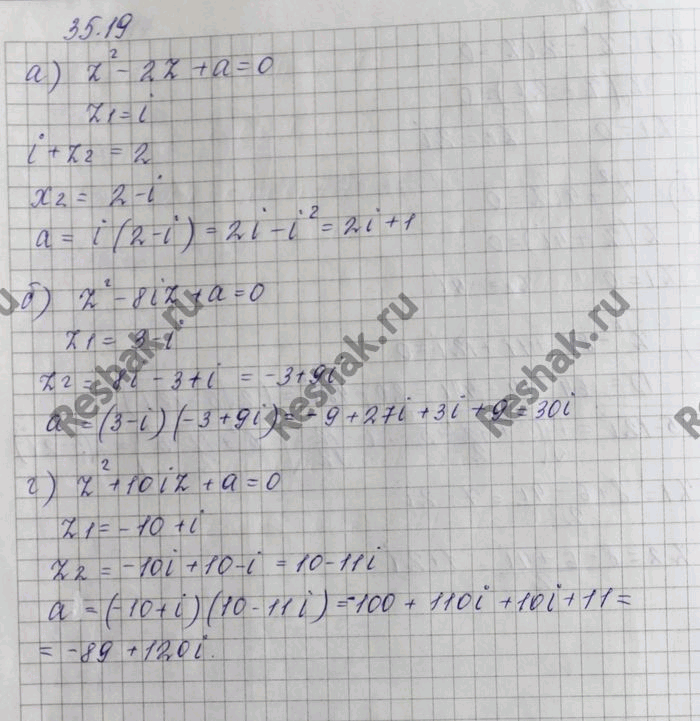 35.19
а) z² - 2z + a = 0
z1 = i
i + z2 = 2
x2 = 2 - i
a = i(2-i) = 2i - i² = 2i + 1
б) z² - 8iz + a = 0
z1 = 3-i
z2 = 8i - 3 + i = -3+9i
a = (3-i)(-3+9i) = -9 + 27i + 3i + 9 = 30i
г) z² + 10iz + a = 0
z1 = -10 + i
z2 = -10i + 10 - i = 10 - 11i
a = (-10+i)(10-11i) = -100 + 110i + 10i + 11 =
= -89 + 120i.
Reshak.ru
Reshak.ru
Reshak.ru